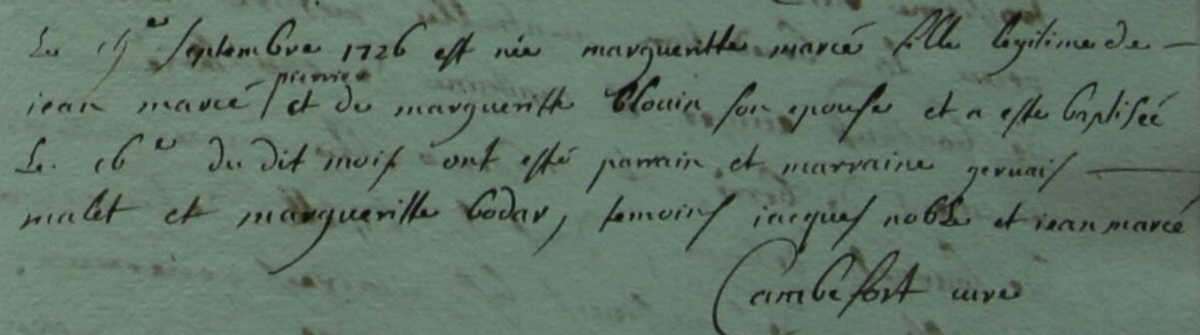 Le 15e Septembre 1726 est née margueritte marcé fille legitime de
jean marcé et de margueritte blouin son epouse et a este baptiseé
Le 16e du dit mois ont esté parrain et marraine gervais
malet et margueritte bodar, temoins jacques noble et jean marcé
Cambefort cure